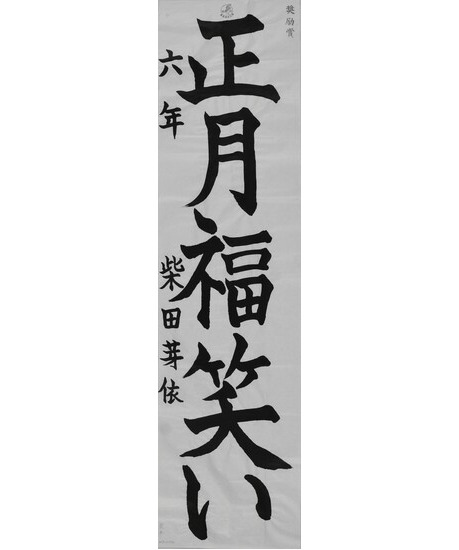 奨励賞
正月福笑い
六年 柴田芽依